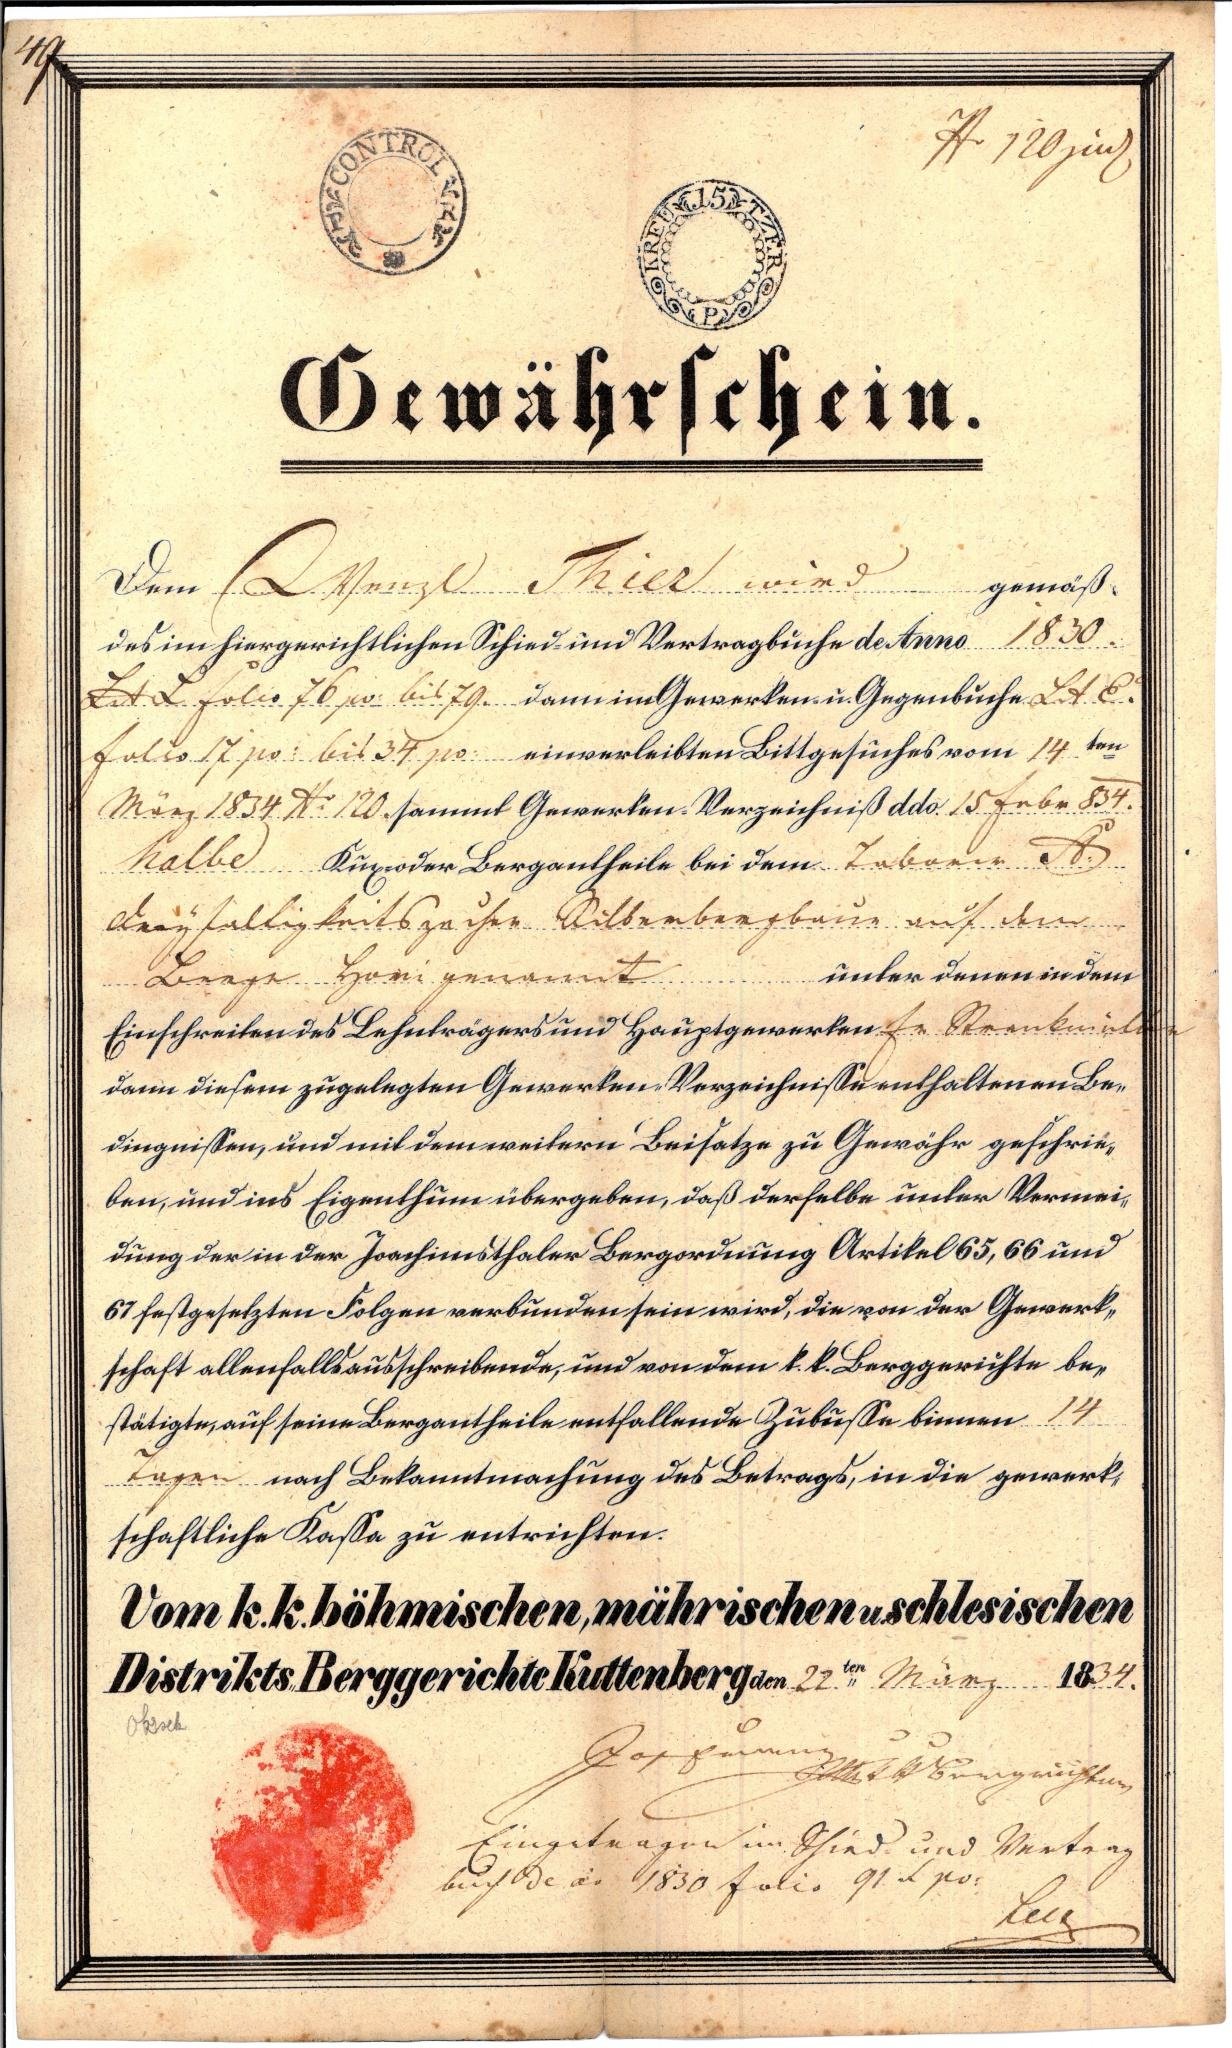 49
Nr 120
CONTROL
15 KREUTZER
P
Gewährschein.
Dem Wenzl Thier wird gemäß
des im hiergerichtlichen Schied- und Vertragbuche de Anno 1830.
Lit L folio 76 po: bis 79. dann im Gewerken- u. Gegenbuche Lit C.
folio 17 po: bis 34 po: einverleibten Bittgesuches vom 14ten
März 1834 Nr 120. sammt Gewerken-Verzeichniß ddo. 15 Febr 834.
halbe Kux oder Bergantheile bei dem Taborer St.
dreyfaltigkeitszecher Silberbergbaue auf dem
Berge Hori genannt unter denen in dem
Einschreiten des Lehnträgers und Hauptgewerken
dann diesem zugelegten Gewerken-Verzeichnisse enthaltenen Be-
dingnissen, und mit dem weitern Beisatze zu Gewähr geschrie-
ben, und ins Eigenthum übergeben, daß derselbe unter Vermei-
dung der in der Joachimsthaler Bergordnung Artikel 65, 66 und
67 festgesetzten Folgen verbunden sein wird, die von der Gewerk-
schaft allenfalls ausschreibende, und von dem k. k. Berggerichte be-
stätigte, auf seine Bergantheile entfallende Zubusse binnen 14
Tagen nach Bekanntmachung des Betrags, in die gewerk-
schaftliche Kassa zu entrichten.
Vom k. k. böhmischen, mährischen u schlesischen
Distrikts Berggerichte Kuttenberg den 22ten März 1834.
Eingetragen im Schied- und Vertrag
buch de ao 1830 folio 91 L po: